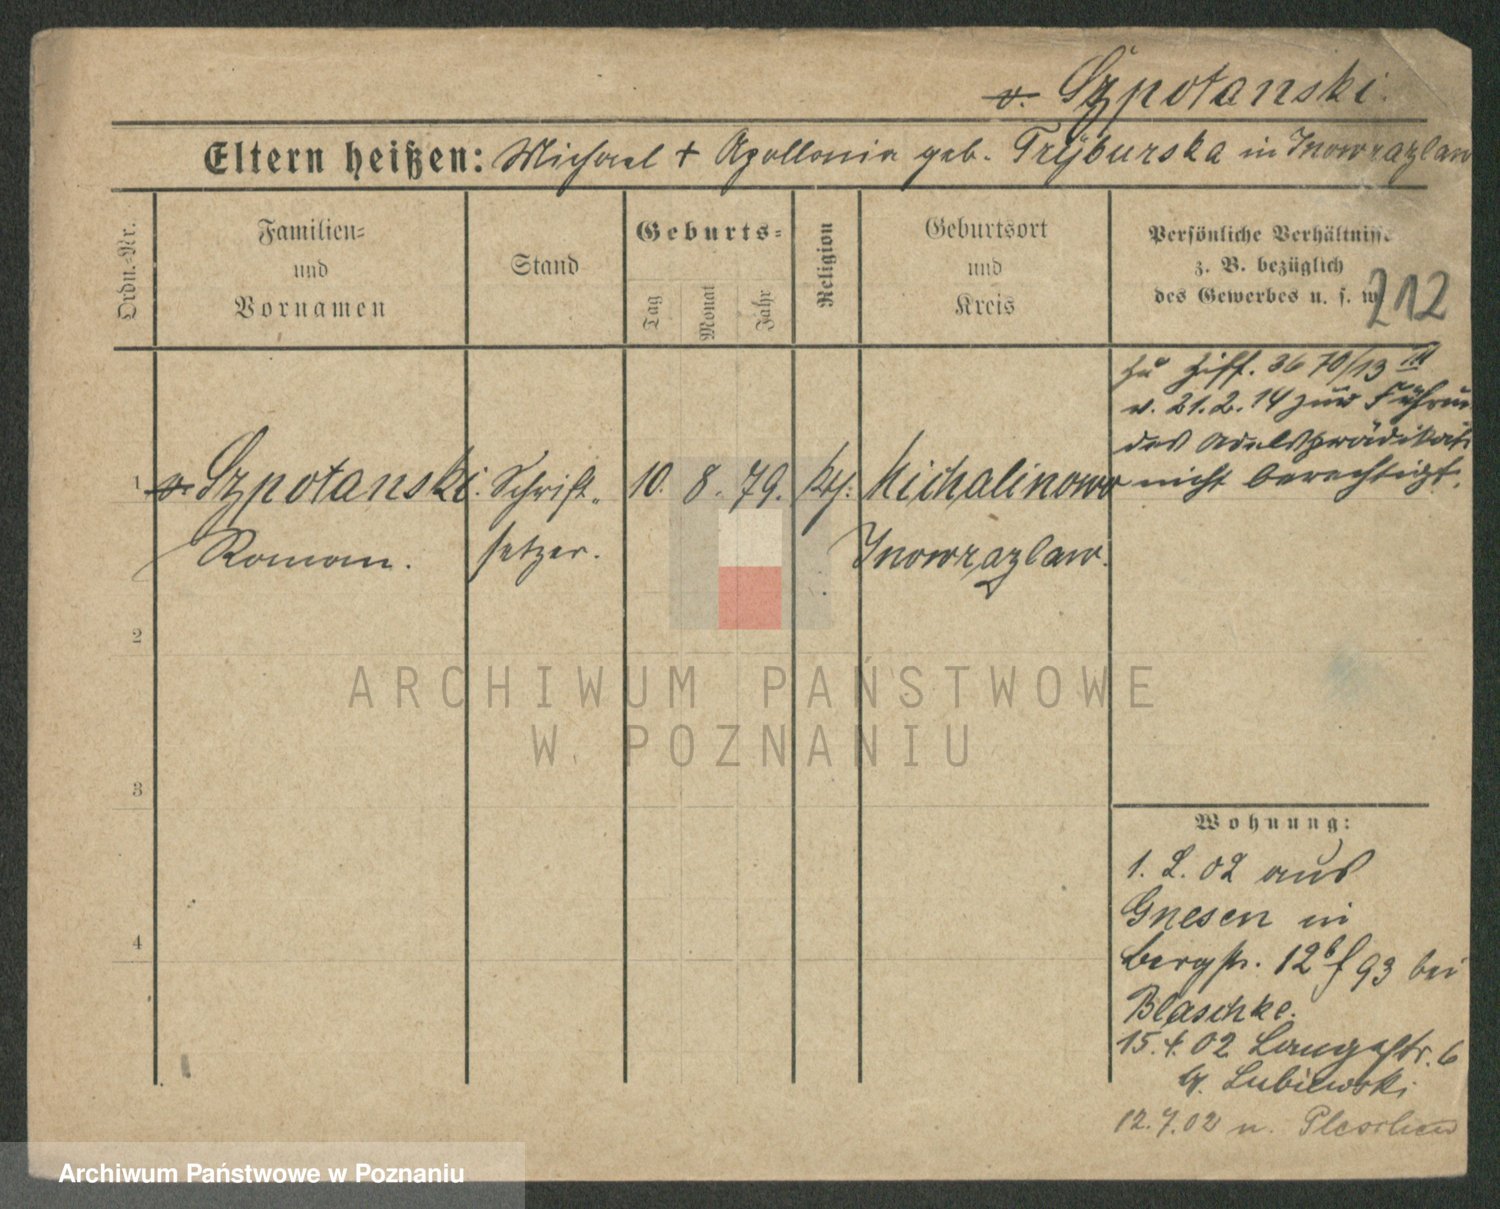 v. Szpotanski.
Eltern heißen: Michael + Apollonia geb. Tryburska in Inowrazlaw
Ordn.-Nr.
Familien-
und
Vornamen
Stand
Geburts-
Tag
Monat
Jahr
Religion
Geburtsort
und
Kreis
Persönliche Verhältnisse
z. B. bezüglich
des Gewerbes u. s. w.
212
zu Ziff. 3670/13 III
v. 21.2.14 zur Führung
des Adelsprädikats
nicht berechtigt.
1 v. Szpotanski. Schrift- 10. 8. 79. kth. Michalinowo
Roman. setzer. Inowrazlaw.
2
3
4
Wohnung:
1. 2. 02 aus
Gnesen in
Bergstr. 12b f 93 bei
Blaschke.
15.4.02 Langestr. 6
b. Lubiewski
12.7.02 n. Pleschen
ARCHIWUM PAŃSTWOWE
W POZNANIU
Archiwum Państwowe w Poznaniu